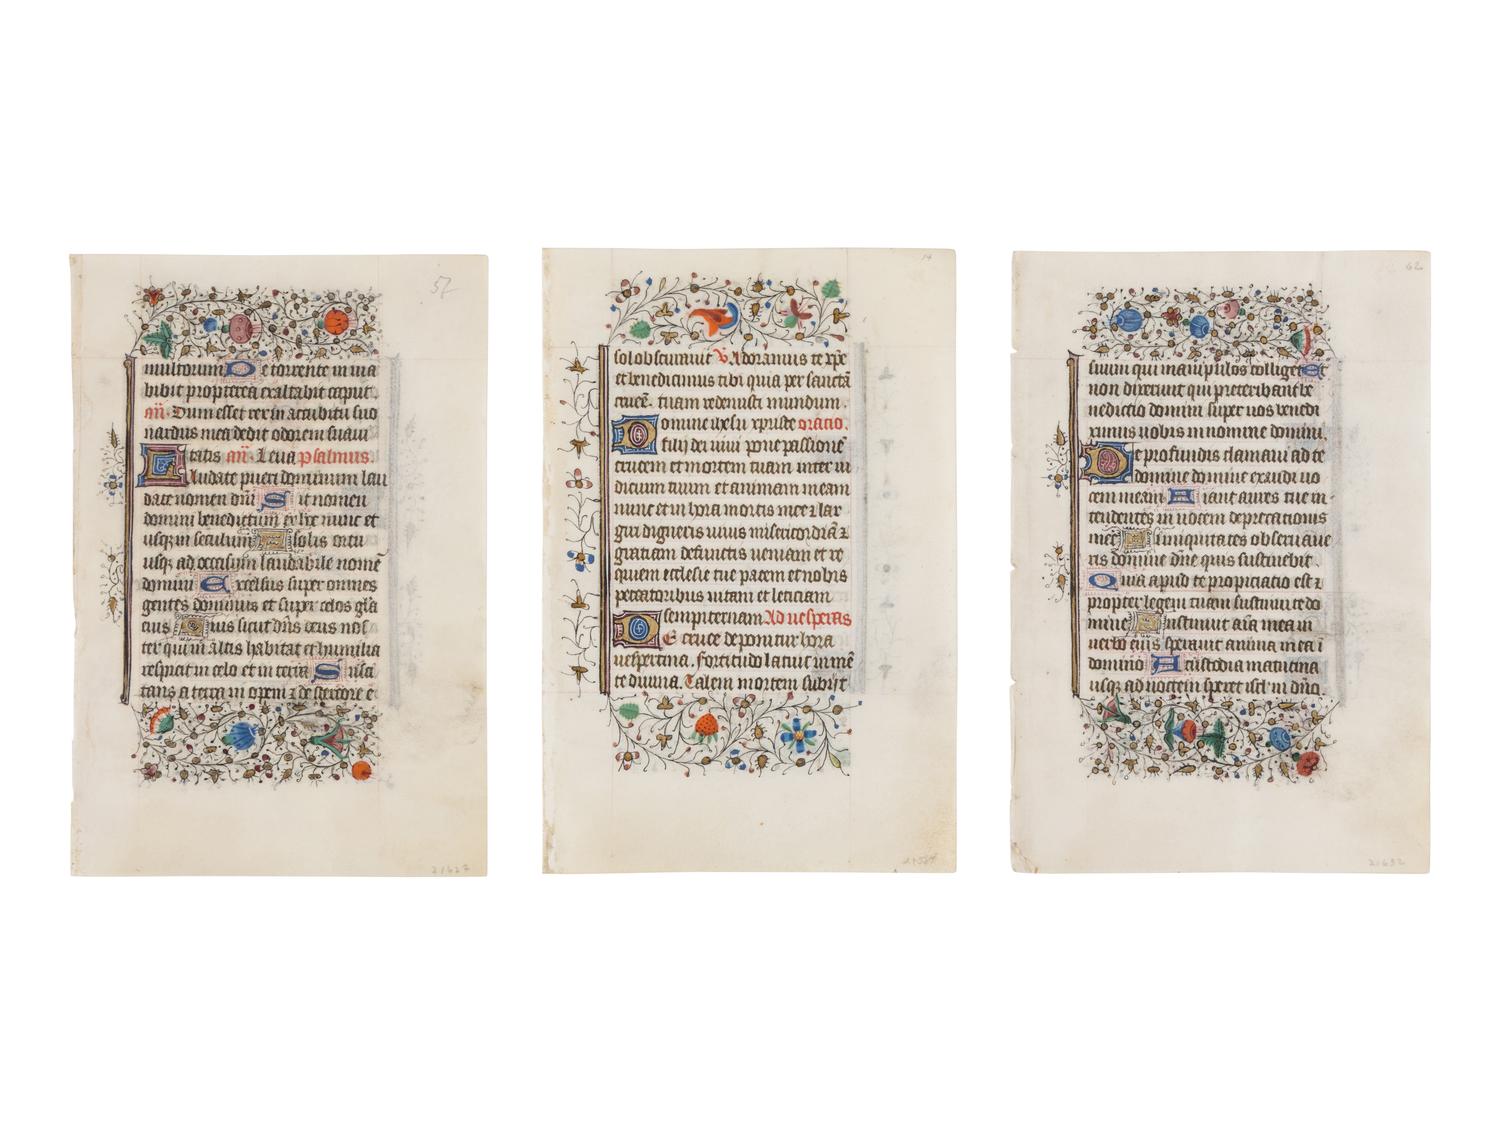 57
multorum De torrente in via
bibit propterea exaltabit caput.
añ. Dum esset rex in accubitu suo
nardus mea dedit odorem suavi
tatis añ. Leva psalmus.
Laudate pueri dominum lau
date nomen dñi Sit nomen
domini benedictum ex hoc nunc et
usq; in seculum A solis ortu
usq; ad occasum laudabile nomē
domini Excelsus super omnes
gentes dominus et super celos glā
eius Quis sicut dñs deus nos
ter qui in altis habitat et humilia
respicit in celo et in terra Susci
tans a terra inopem ⁊ de stercore e
21627
14
sol obscuravit V. Adoramus te xpē
et benedicimus tibi quia per sanctā
crucē. tuam redemisti mundum.
Domine ihesu xpriste oratio.
fili dei vivi pone passionē
crucem et mortem tuam inter iu
dicium tuum et animam meam
nunc et in hora mortis mee ⁊ lar
giri digneris vivis misericordiā ⁊
gratiam defunctis veniam et re
quiem ecclesie tue pacem et nobis
peccatoribus vitam et leticiam
sempiternam Ad vesperas
De cruce deponitur hora
vespertina. Fortitudo latuit in mē
te divina. Talem mortem subiit
62
sinum qui manipulos colliget Et
non dixerunt qui preteribant be
nedictio domini super vos benedi
ximus vobis in nomine domini.
De profundis clamavi ad te
domine domine exaudi vo
cem meam Fiant aures tue in-
tendentes in vocem deprecationis
mee Si iniquitates observave
ris domine dñe quis sustinebit.
Quia apud te propiciatio est ⁊
propter legem tuam sustinui te do
mine Sustinuit aīa mea in
verbo eius speravit anima mea ī
domino A custodia matutina
usq; ad noctem speret isrl' in dño.
21632